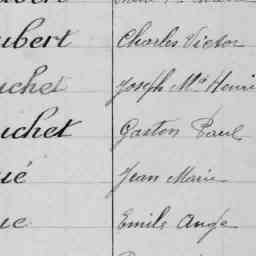 ubert Charles Victor
uchet Joseph Mie Henri
uchet Gaston Paul
ué Jean Marie
ue Emile Ange